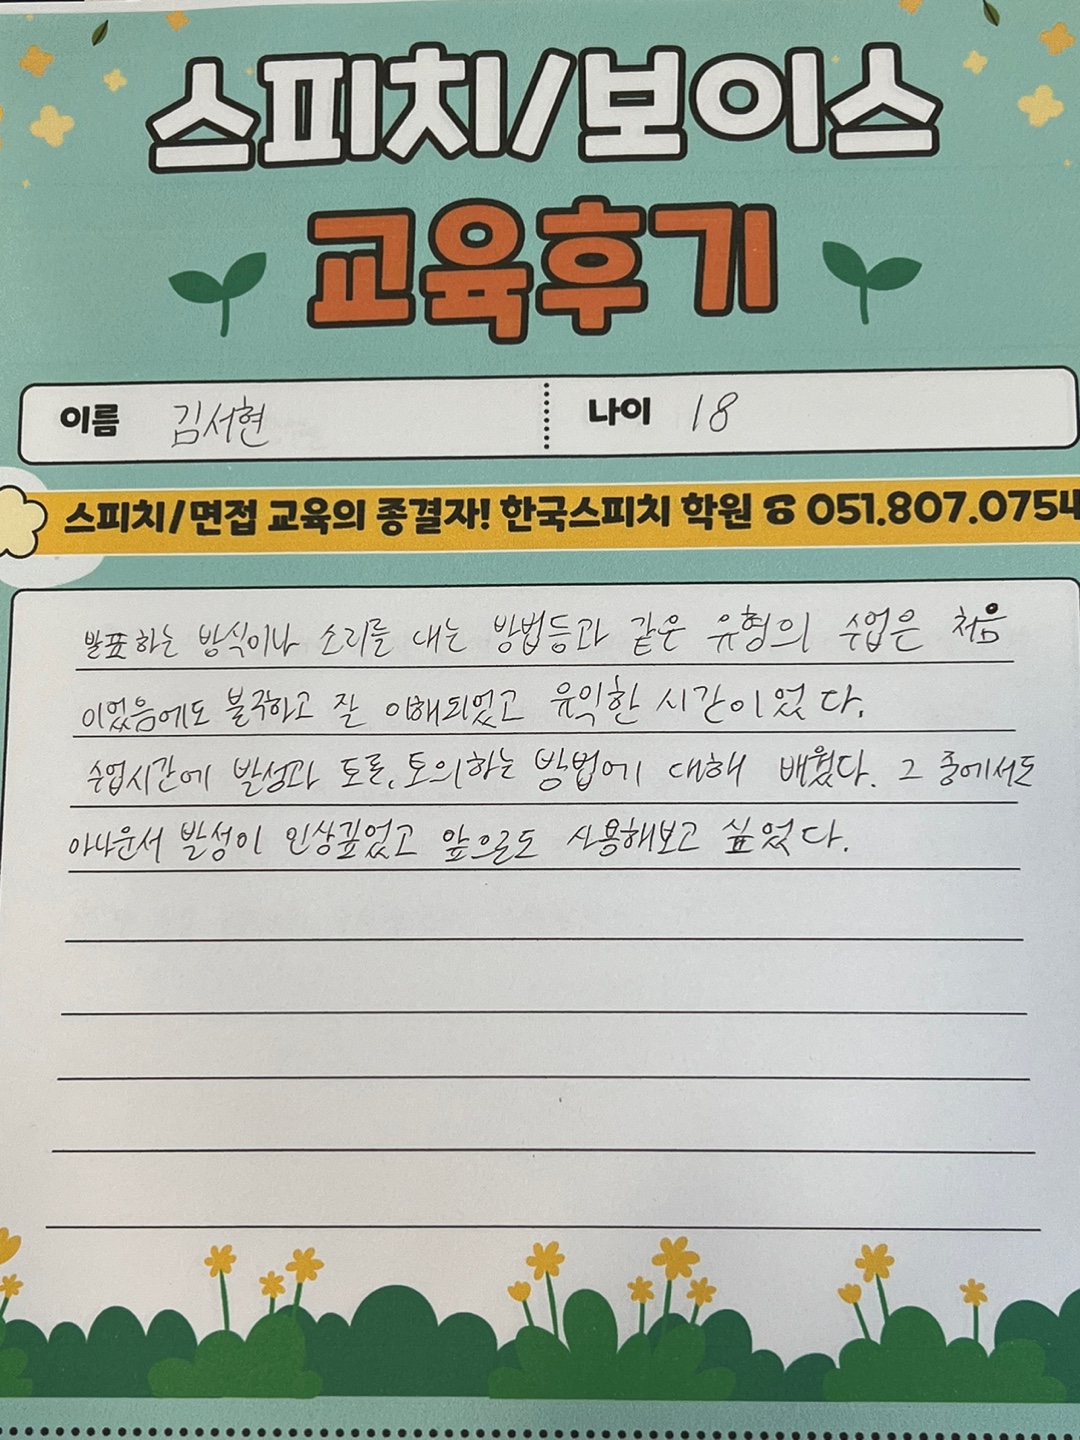 스피치/보이스
교육후기
이름 김서현 나이 18
스피치/면접 교육의 종결자! 한국스피치 학원 ☎ 051.807.0754
발표하는 방식이나 소리를 내는 방법등과 같은 유형의 수업은 처음
이었음에도 불구하고 잘 이해되었고 유익한 시간이었다.
수업시간에 발성과 토론, 토의하는 방법에 대해 배웠다. 그 중에서도
아나운서 발성이 인상깊었고 앞으로도 사용해보고 싶었다.